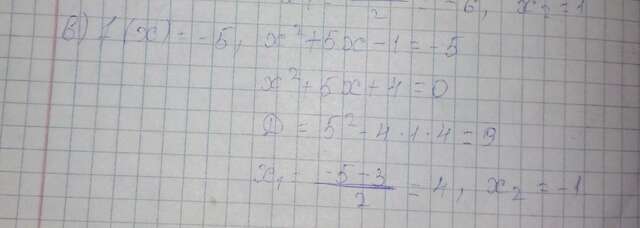 2 = -6, x₂ = 1
б) f(x) = -5, x² + 5x - 1 = -5
x² + 5x + 4 = 0
D = 5² - 4 · 1 · 4 = 9
x₁ = (-5 - 3)/2 = 4, x₂ = -1